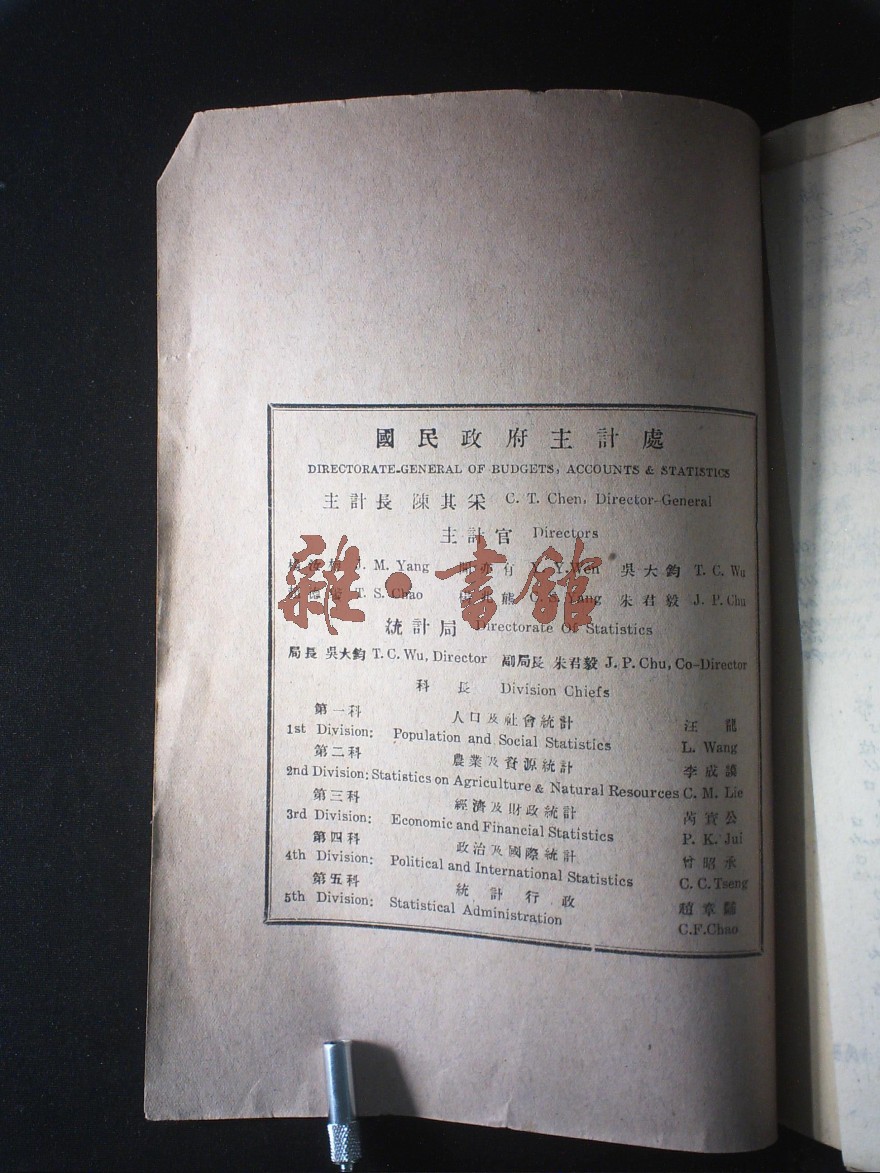 國民政府主計處
DIRECTORATE-GENERAL OF BUDGETS, ACCOUNTS & STATISTICS
主計長 陳其采 C. T. Chen, Director-General
主計官 Directors
J. M. Yang 聞亦有 Y. Y. Wen 吳大鈞 T. C. Wu
T. S. Chao Yang 朱君毅 J. P. Chu
統計局 Directorate Of Statistics
局長 吳大鈞 T. C. Wu, Director 副局長 朱君毅 J. P. Chu, Co-Director
科長 Division Chiefs
第一科 人口及社會統計 汪龍
1st Division: Population and Social Statistics L. Wang
第二科 農業及資源統計 李成謨
2nd Division: Statistics on Agriculture & Natural Resources C. M. Lie
第三科 經濟及財政統計 芮寶公
3rd Division: Economic and Financial Statistics P. K. Jui
第四科 政治及國際統計 曾昭承
4th Division: Political and International Statistics C. C. Tseng
第五科 統計行政 趙章黼
5th Division: Statistical Administration C.F.Chao
雜·書館